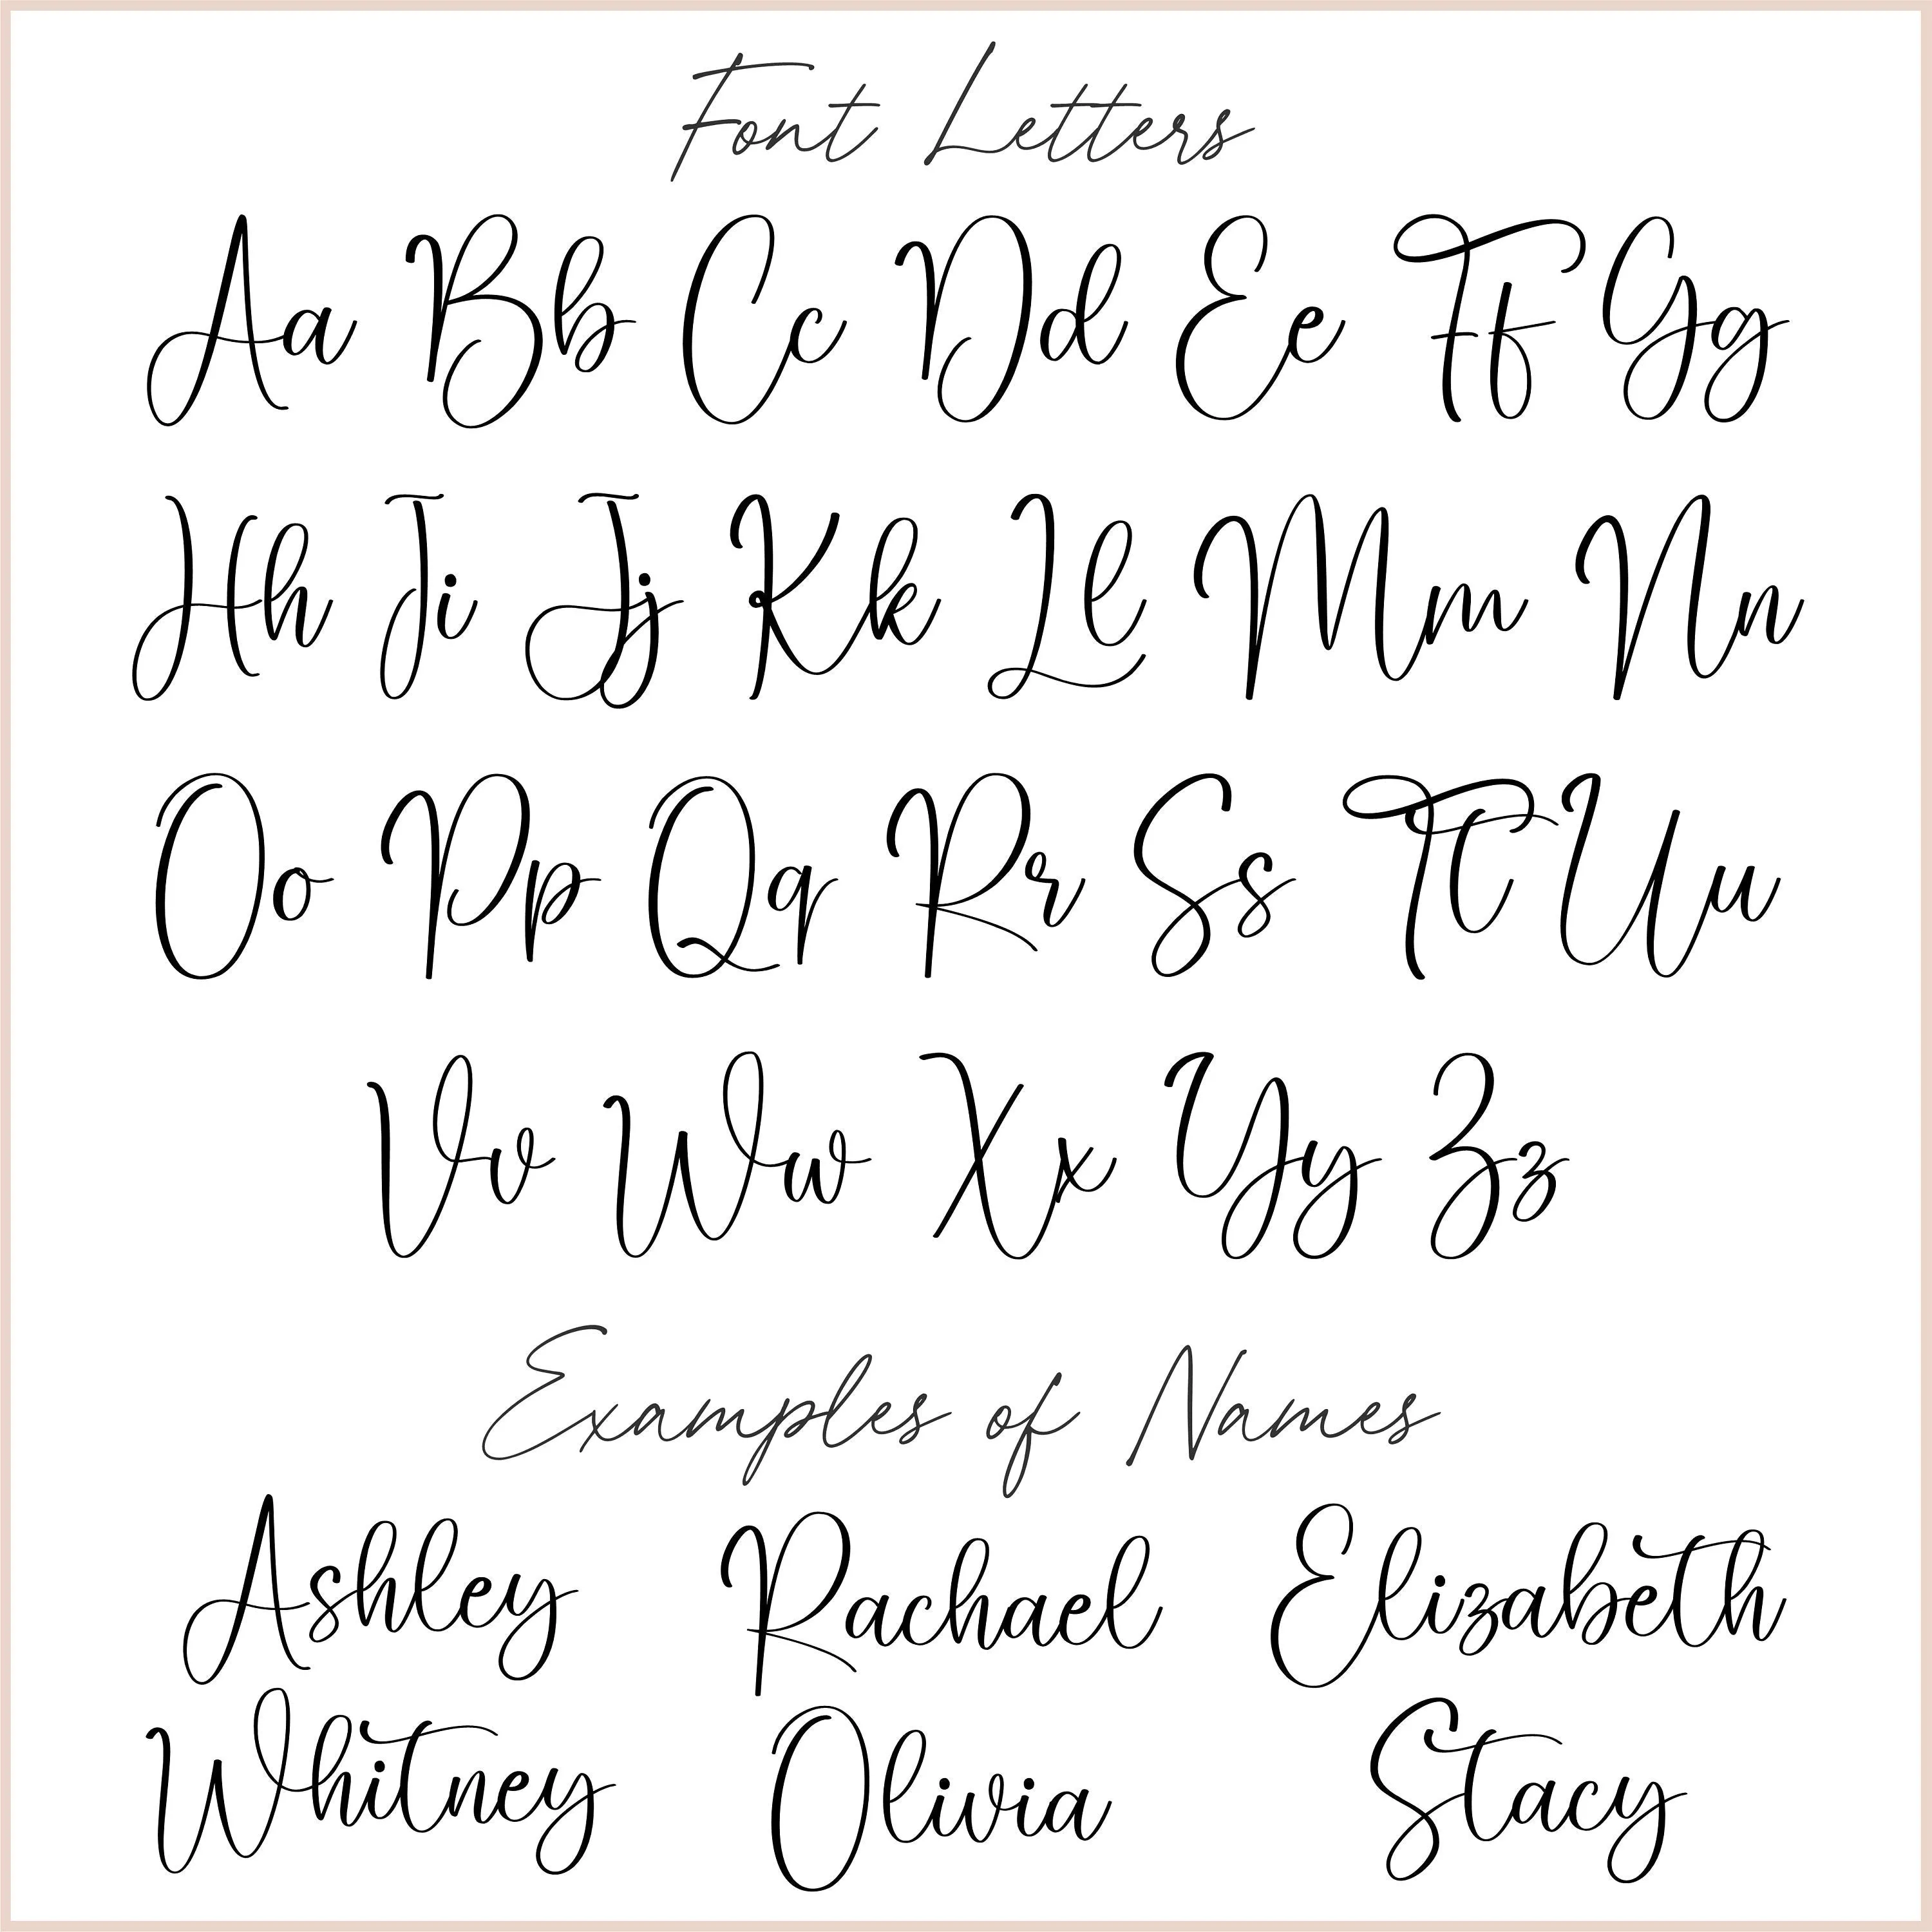 Font Letters
Aa Bb Cc Dd Ee Ff Gg
Hh Ii Jj Kk Ll Mm Nn
Oo Pp Qq Rr Ss Tt Uu
Vv Ww Xx Yy Zz
Examples of Names
Ashley Rachael Elizabeth
Whitney Olivia Stacy